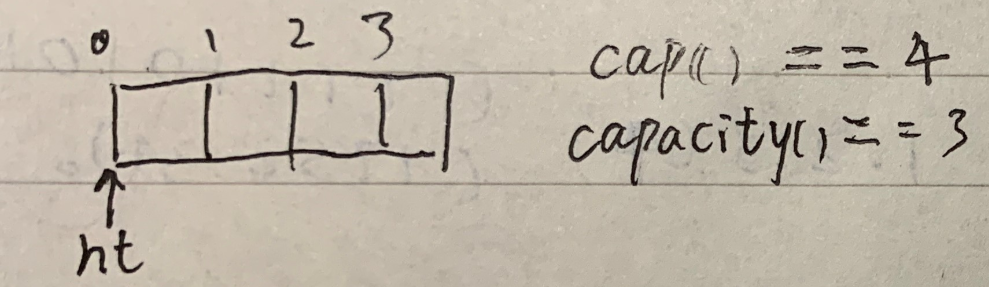 0 1 2 3
cap() == 4
capacity() == 3
ht